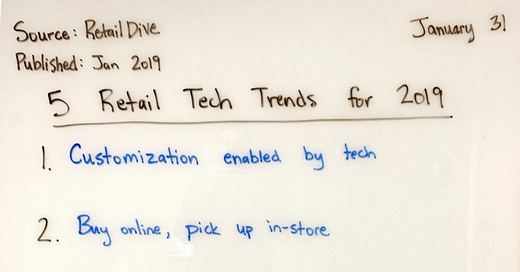 Source: RetailDive
January 31
Published: Jan 2019
5 Retail Tech Trends for 2019
1. Customization enabled by tech
2. Buy online, pick up in-store